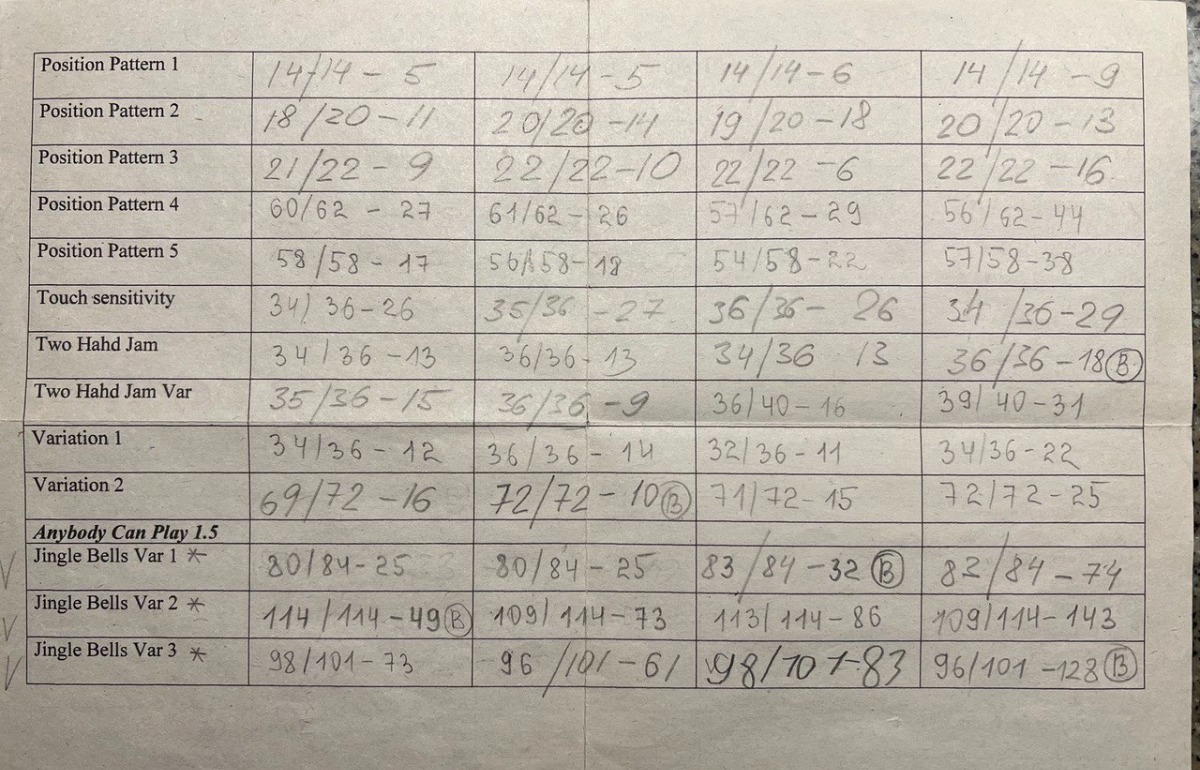 Position Pattern 1 14/14 - 5 14/14 - 5 14/14 - 6 14/14 - 9
Position Pattern 2 18/20 - 11 20/20 - 14 19/20 - 18 20/20 - 13
Position Pattern 3 21/22 - 9 22/22 - 10 22/22 - 6 22/22 - 16
Position Pattern 4 60/62 - 27 61/62 - 26 57/62 - 29 56/62 - 44
Position Pattern 5 58/58 - 17 56/58 - 18 54/58 - 22 57/58 - 38
Touch sensitivity 34/36 - 26 35/36 - 27 36/36 - 26 34/36 - 29
Two Hahd Jam 34/36 - 13 36/36 - 13 34/36 13 36/36 - 18 B
Two Hahd Jam Var 35/36 - 15 36/36 - 9 36/40 - 16 39/40 - 31
Variation 1 34/36 - 12 36/36 - 14 32/36 - 11 34/36 - 22
Variation 2 69/72 - 16 72/72 - 10 B 71/72 - 15 72/72 - 25
Anybody Can Play 1.5
V Jingle Bells Var 1 * 80/84 - 25 80/84 - 25 83/84 - 32 B 82/84 - 74
V Jingle Bells Var 2 * 114/114 - 49 B 109/114 - 73 113/114 - 86 109/114 - 143
V Jingle Bells Var 3 * 98/101 - 73 96/101 - 61 98/101 - 83 96/101 - 128 B